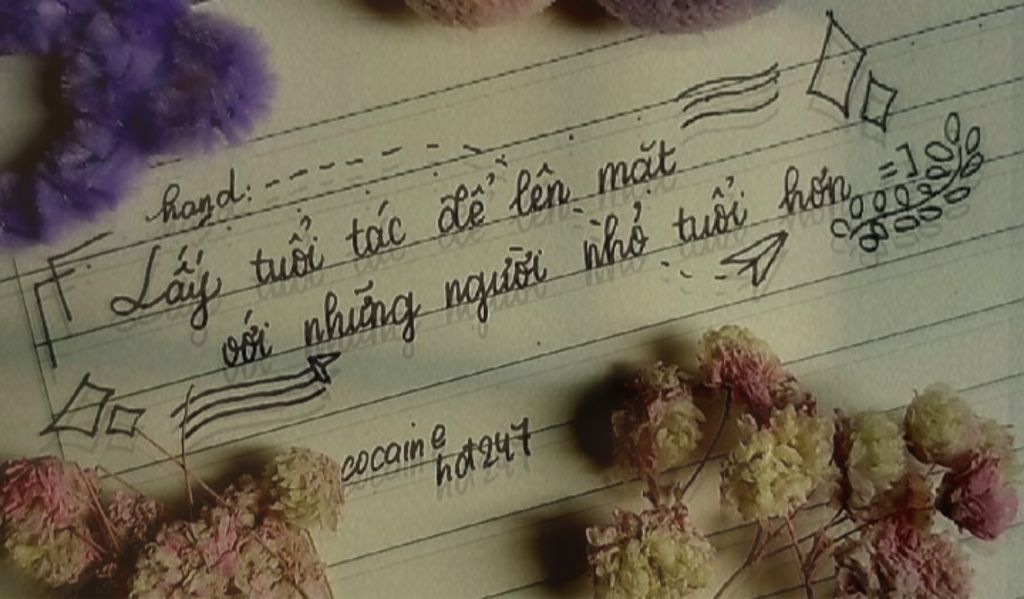 hand:
Lấy tuổi tác để lên mặt
với những người nhỏ tuổi hơn =]
cocaine
hot247